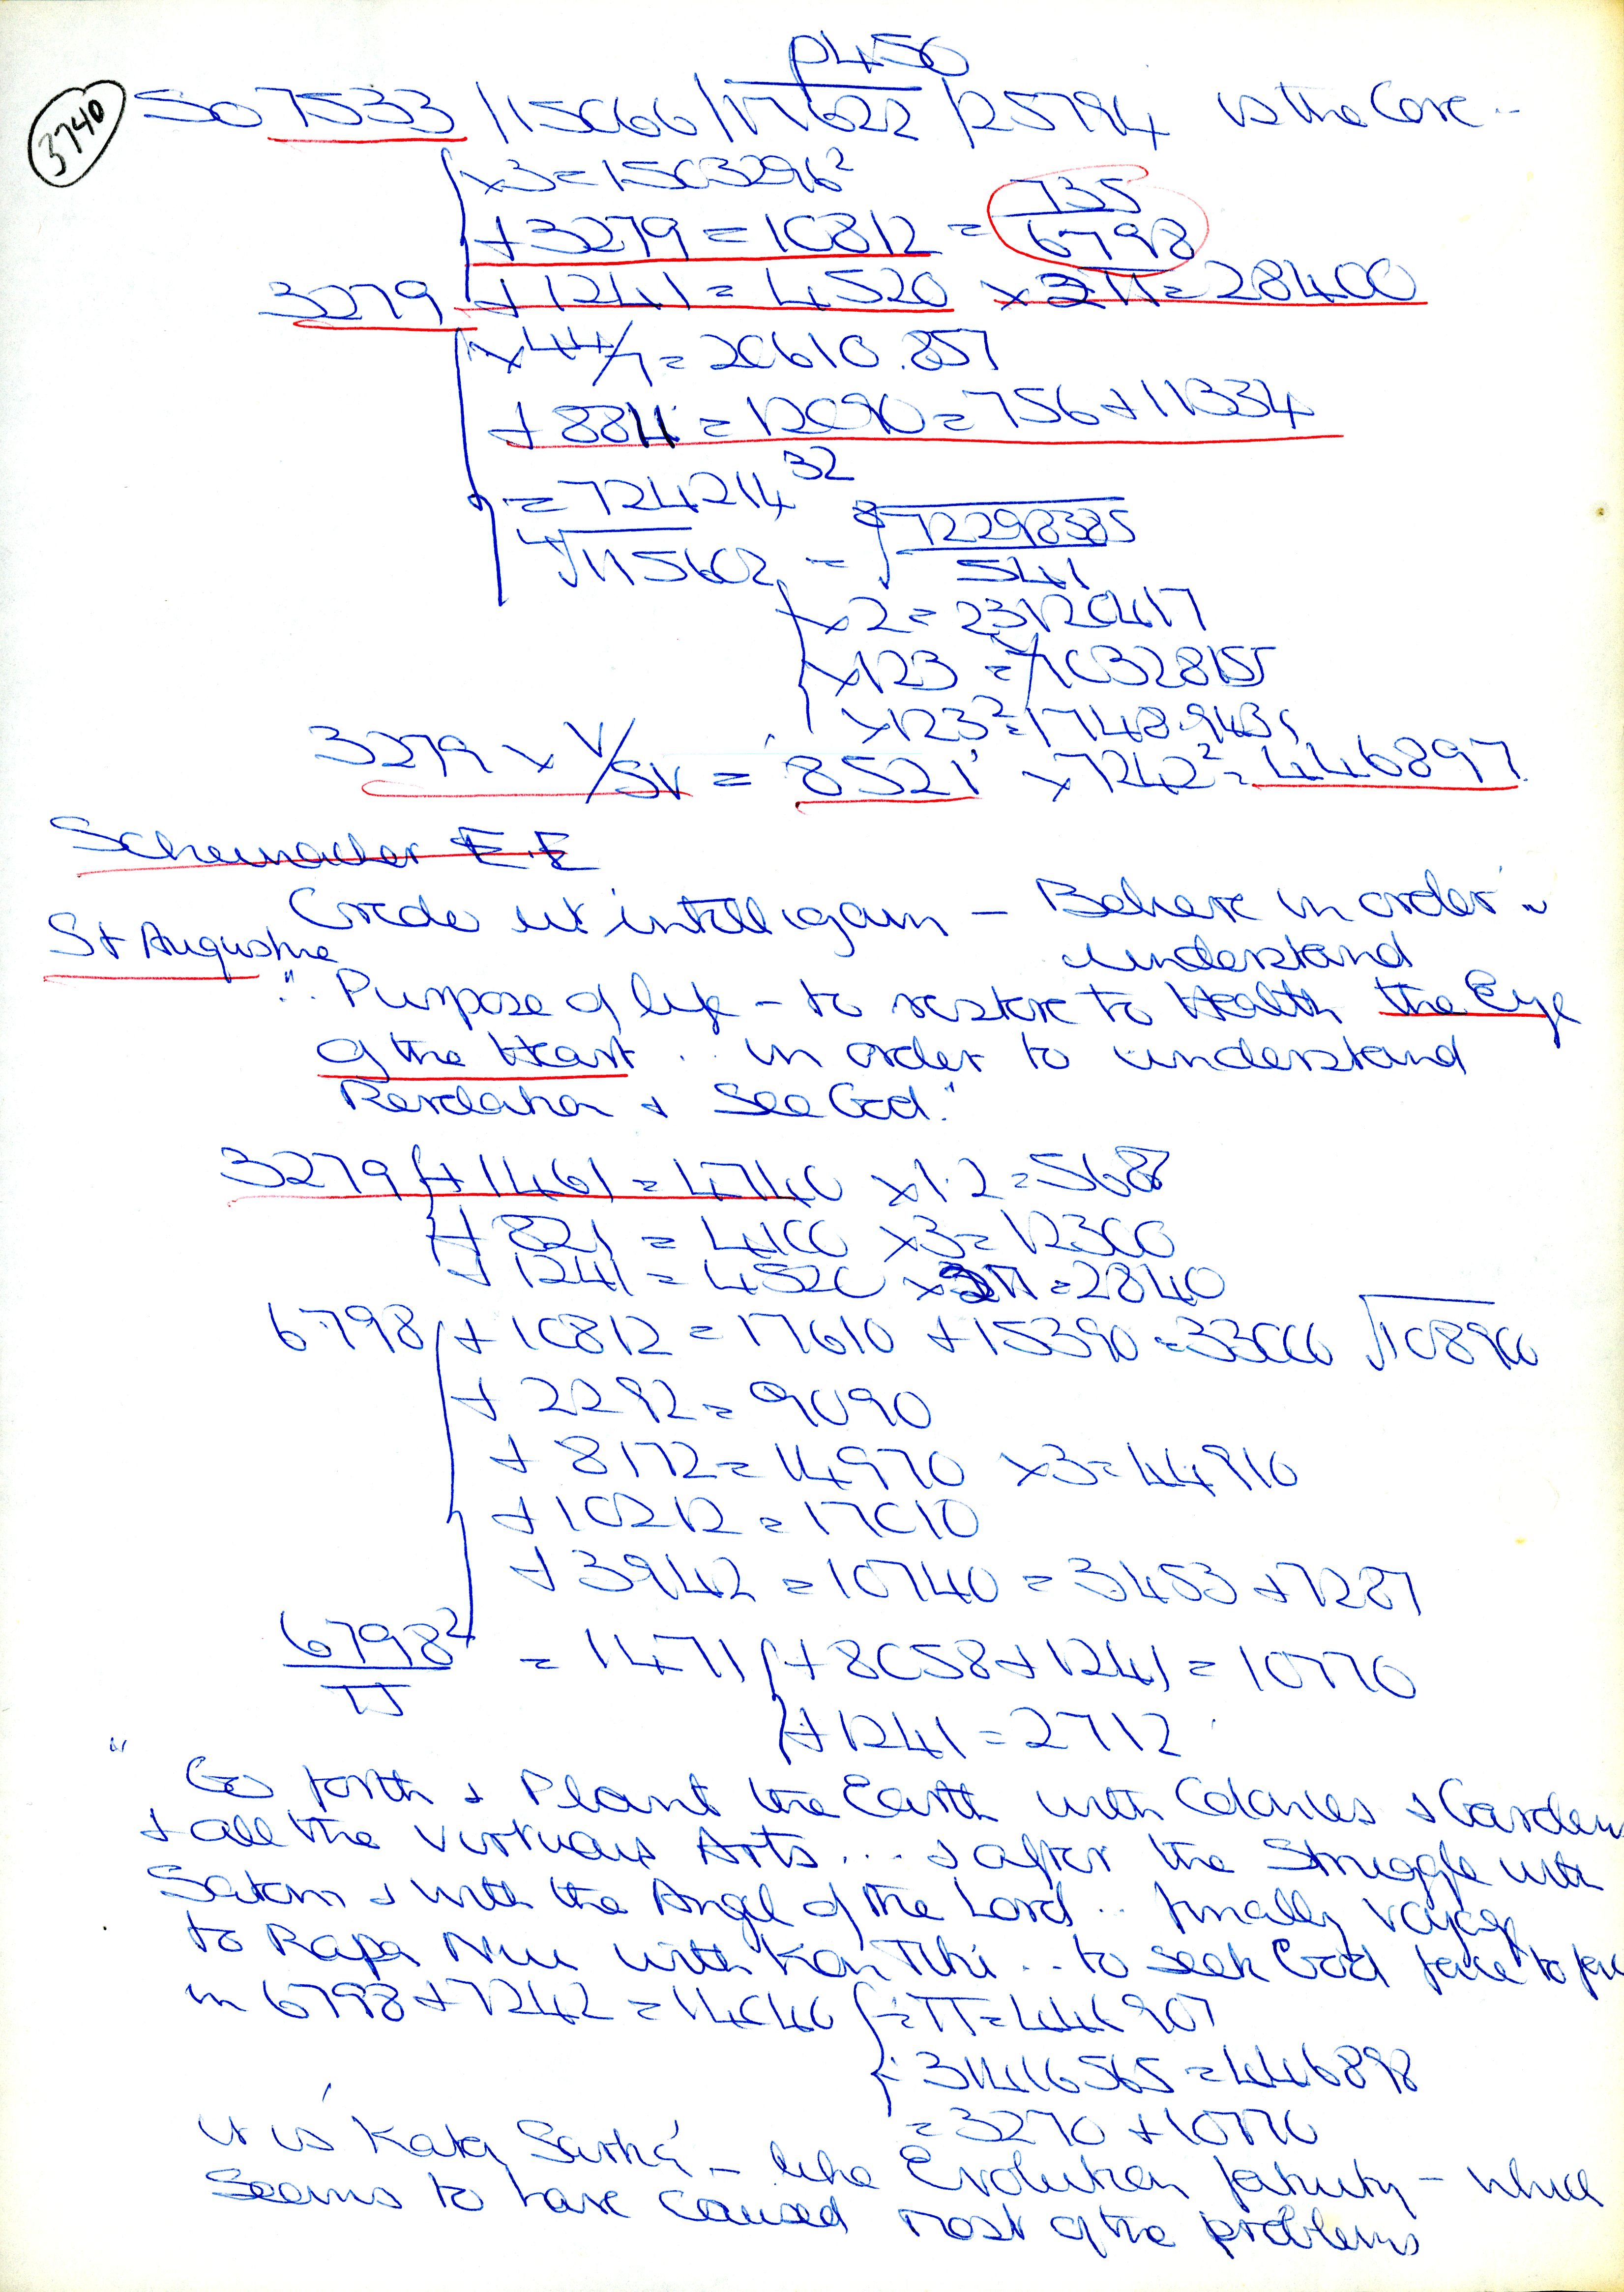 p456
3740
So 7533 / 15066 / 17622 / 25794 is the Core ..
x3 = 1503296²
+ 3279 = 10812 = 735
6798
3279 + 1241 = 4520 x 2π = 28400
x 44/7 = 20610.857
+ 8811 = 12090 = 756 + 11334
= 724214³²
⁴√115602 = ⁸√72298385
541
x2 = 23120417
x123 = 70328155
x123² = 1748.943
3279 x V/SV = 8521 x 7242² = 446897
Schumacher E.F
Credo ut intelligam – Believe in order to
St Augustine understand
"Purpose of life – to restore to Health the Eye
of the Heart .. in order to understand
Revelation + See God."
3279 + 1461 = 4740 x 1.2 = 5688
+ 821 = 4100 x 3 = 12300
+ 1241 = 4520 x 2π = 2840
6798 + 10812 = 17610 + 15390 = 33000 √10890
+ 2292 = 9090
+ 8172 = 14970 x 3 = 44910
+ 10212 = 17010
+ 3942 = 10740 = 3453 + 7287
6798² = 1471 + 8058 + 1241 = 10770
π
+ 1241 = 2712
"Go forth + Plant the Earth with Colonies + Gardens
+ all the virtuous Arts ... + after the Struggle with
Satan + with the Angel of the Lord .. finally voyage
to Rapa Nui with Kon Tiki .. to seek God face to face
in 6798 + 7242 = 14040 ÷ π = 446907
÷ 31416565 = 446898
= 3270 + 10770
it is Kata Sarka – like Evolution – which
seems to have caused most of the problems